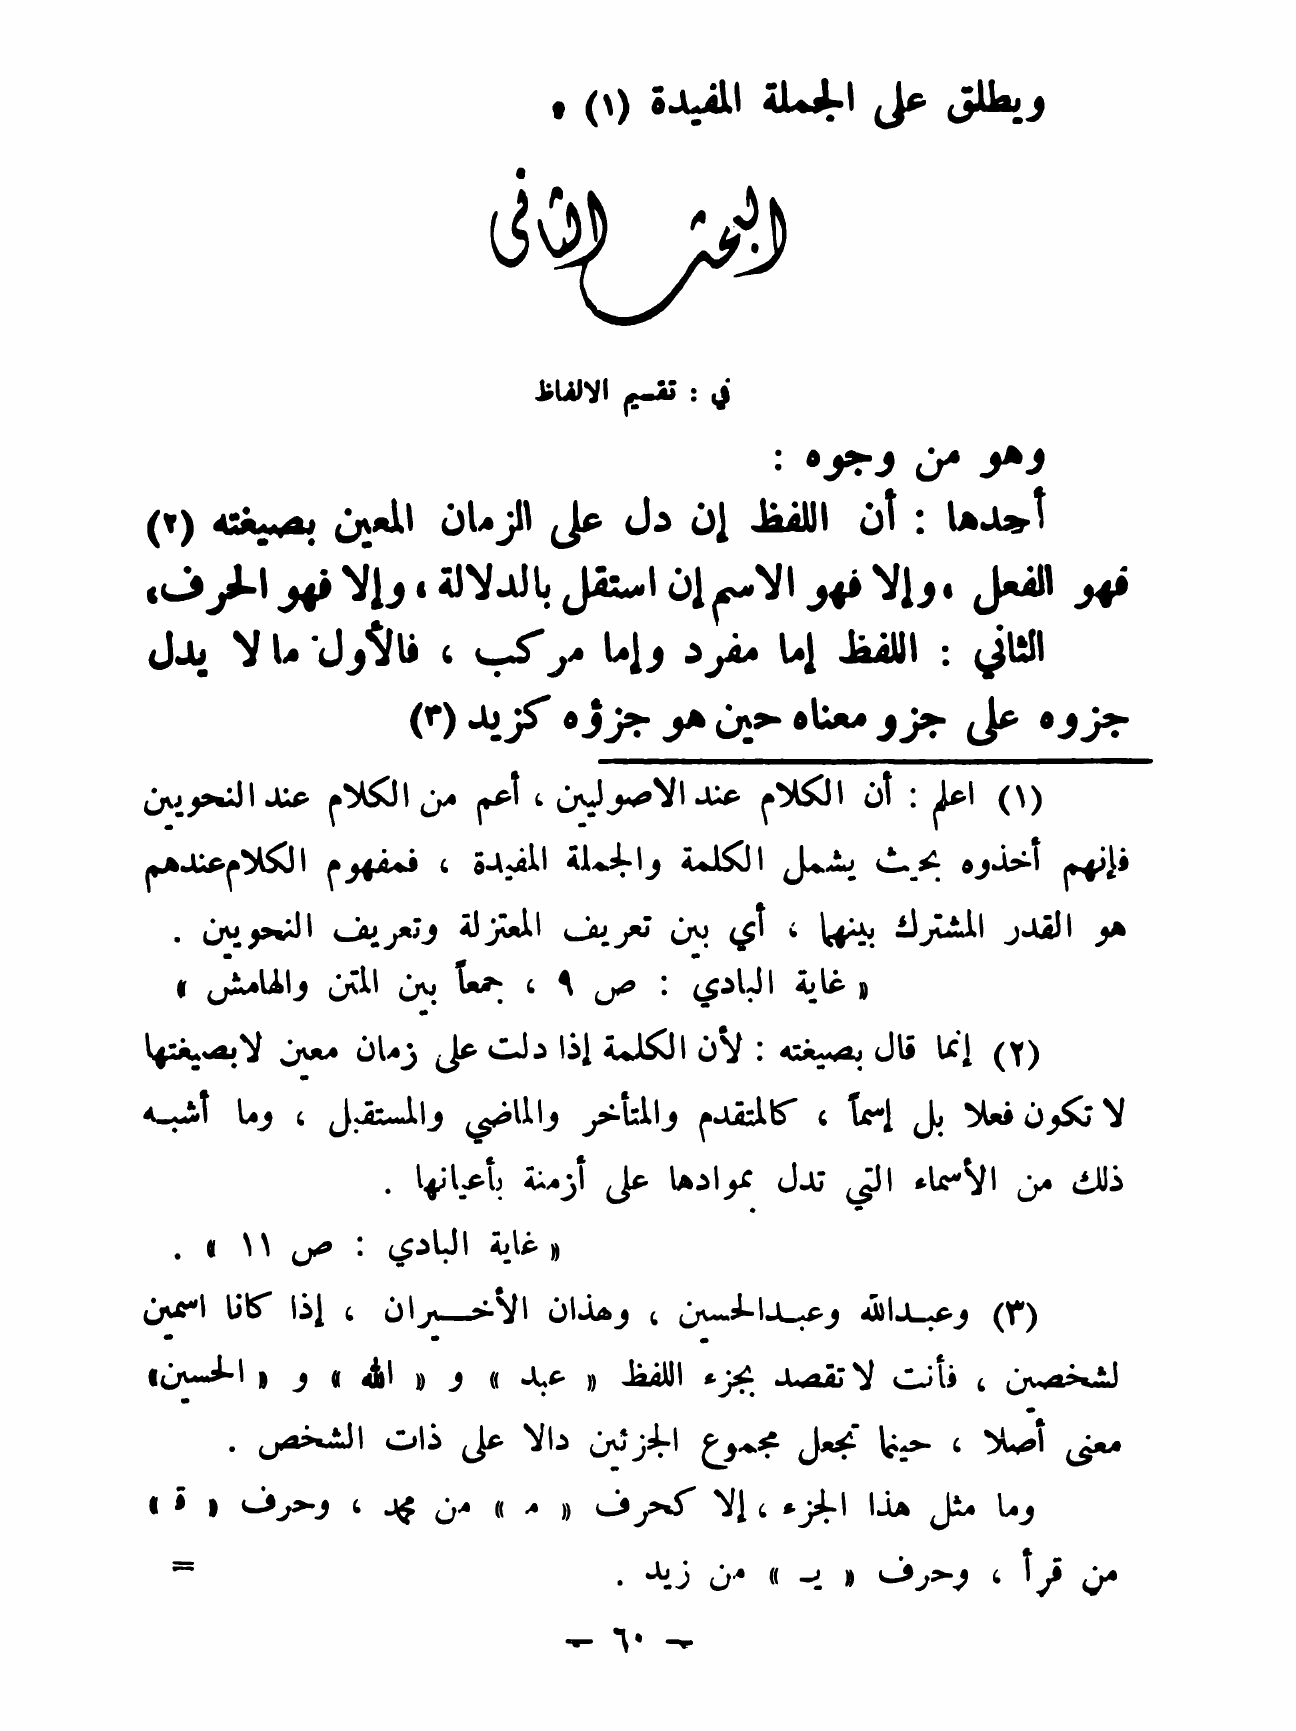 ويطلق على الجملة المفيدة (١) .
البحث الثاني
في : تقسيم الالفاظ
وهو من وجوه :
أحدها : أن اللفظ إن دل على الزمان المعين بصيغته (٢)
فهو الفعل ، وإلا فهو الاسم إن استقل بالدلالة ، وإلا فهو الحرف ،
الثاني : اللفظ إما مفرد وإما مركب ، فالأول ما لا يدل
جزوه على جزو معناه حين هو جزؤه كزيد (٣)
(١) اعلم : أن الكلام عند الاصوليين ، أعم من الكلام عند النحويين
فإنهم أخذوه بحيث يشمل الكلمة والجملة المفيدة ، فمفهوم الكلام عندهم
هو القدر المشترك بينهما ، أي بين تعريف المعتزلة وتعريف النحويين .
« غاية البادي : ص ٩ ، جمعاً بين المتن والهامش »
(٢) إنما قال بصيغته : لأن الكلمة إذا دلت على زمان معين لا بصيغتها
لا تكون فعلا بل إسماً ، كالمتقدم والمتأخر والماضي والمستقبل ، وما أشبـه
ذلك من الأسماء التي تدل بموادها على أزمنة بأعيانها .
« غاية البادي : ص ١١ » .
(٣) وعبـدالله وعبـدالحسين ، وهذان الأخـيران ، إذا كانا اسمين
لشخصين ، فأنت لا تقصد بجزء اللفظ « عبد » و « الله » و « الحسين »
معنى أصلا ، حينما تجعل مجموع الجزئين دالا على ذات الشخص .
وما مثل هذا الجزء ، إلا كحرف « مـ » من محمد ، وحرف « قـ »
من قرأ ، وحرف « يـ » من زيد . =
- ٦٠ -